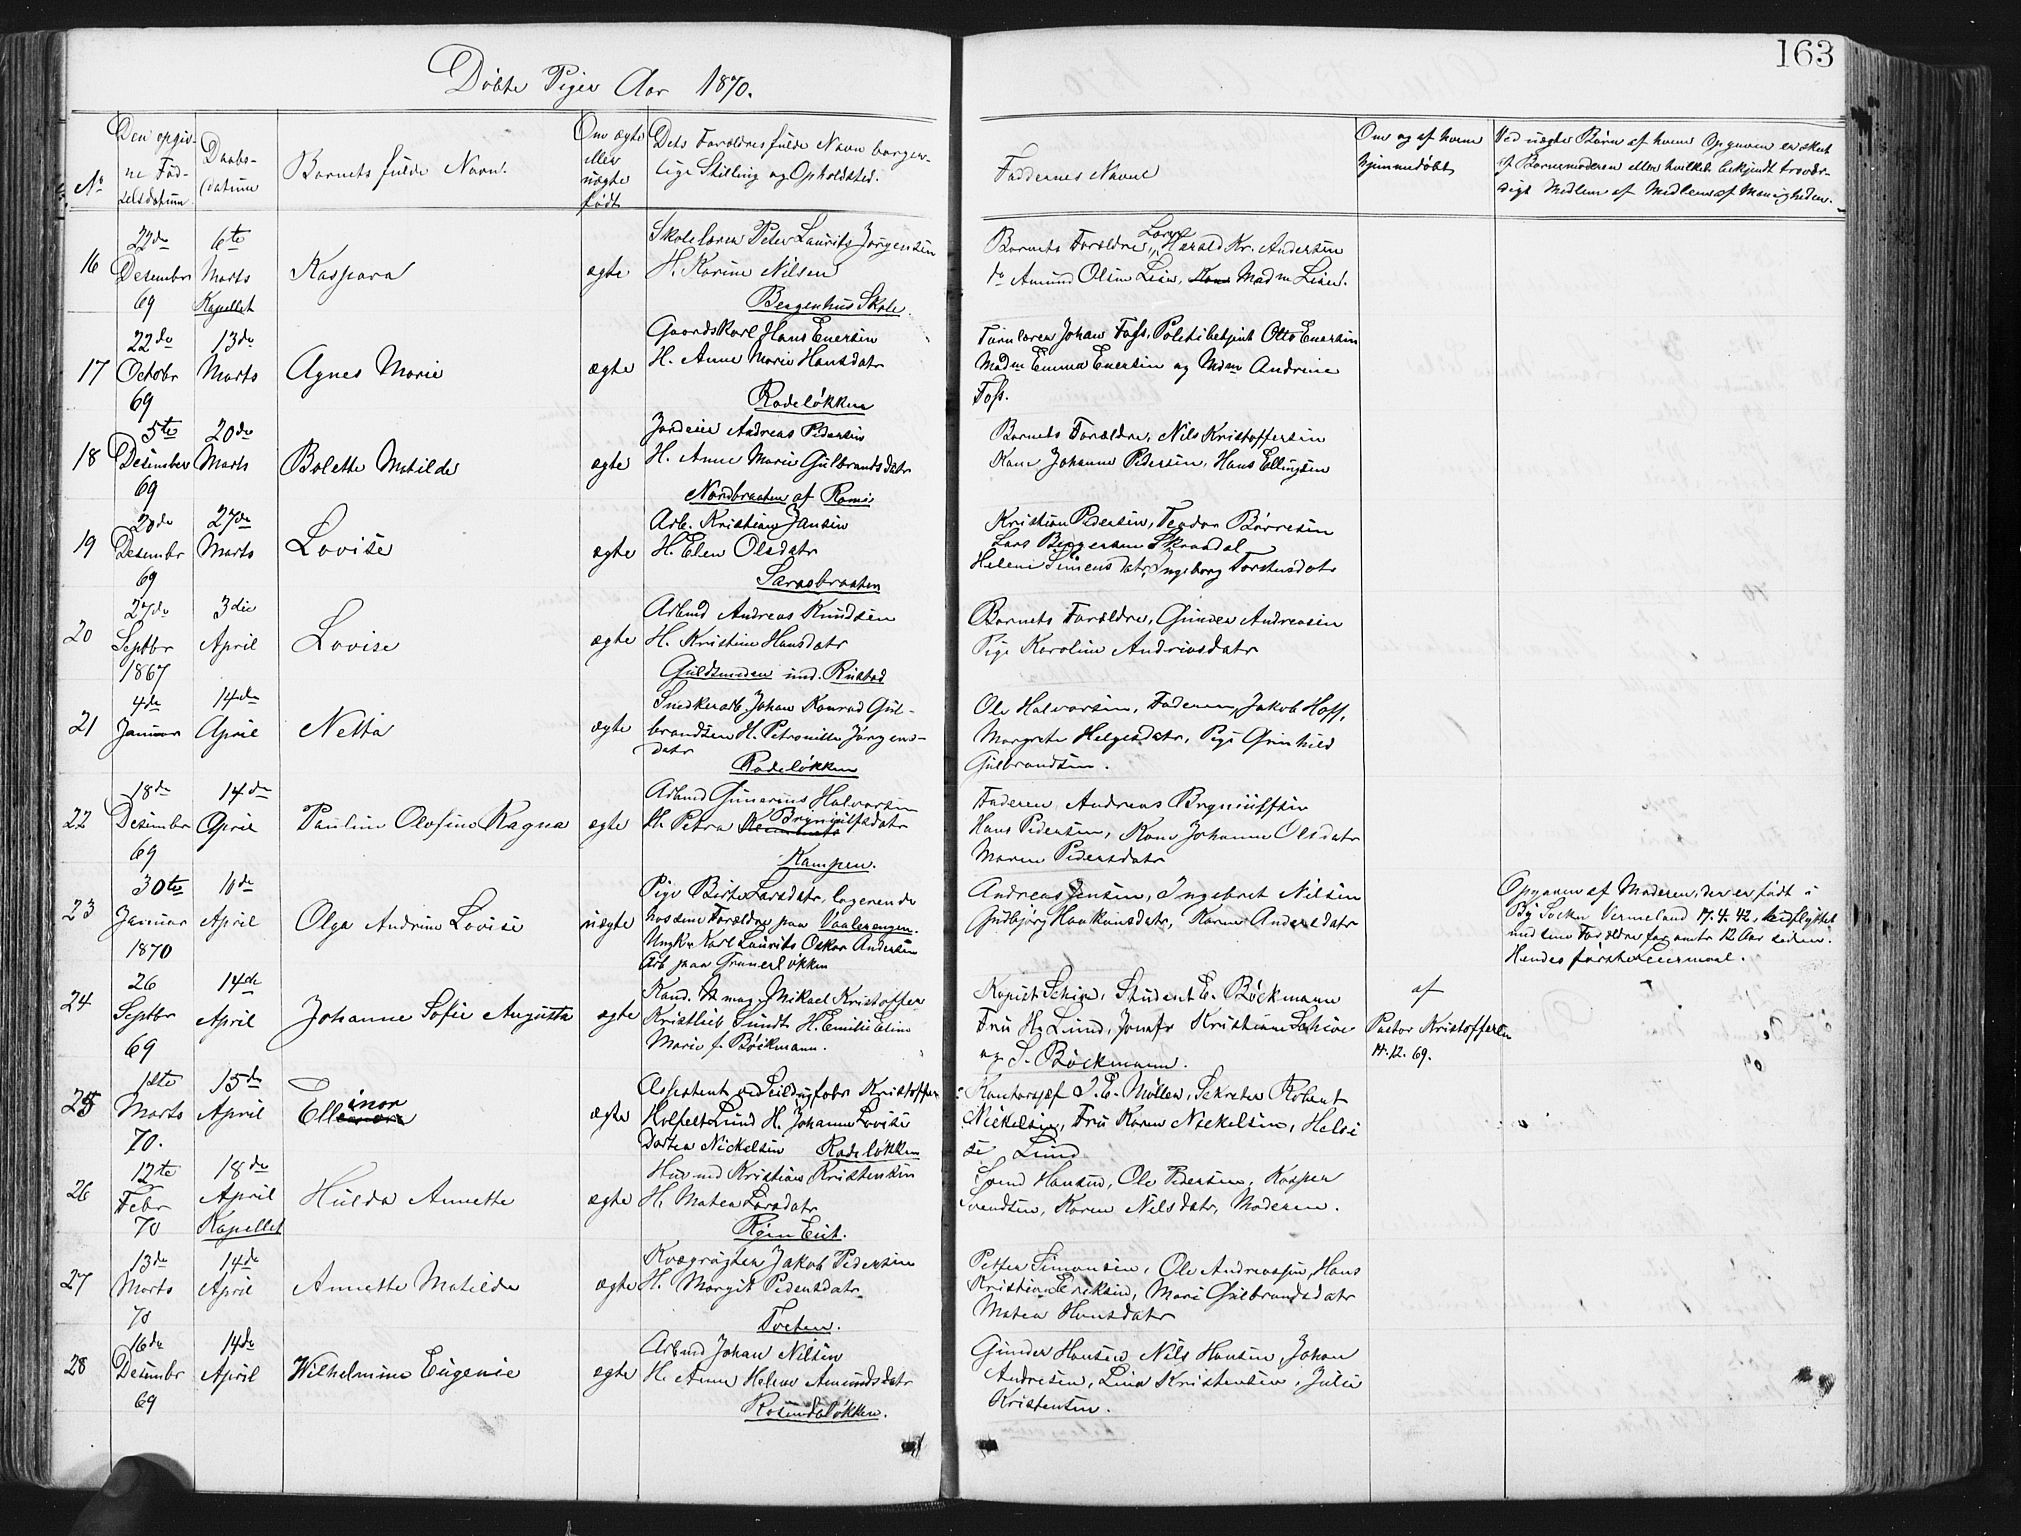 163
Døbte Piger Aar 1870.
No
Den opgiv-
ne Fød-
selsdatum
Daabs-
datum
Barnets fulde Navn.
Om ægte
eller
uægte
født
Dets Forældres fulde Navn borger-
lige Stilling og Opholdsted.
Faddernes Navne
Om og af hvem
hjemmedøbt
Ved uægte Børn af hvem Opgaven er skeet
af Barnemoderen eller hvilket bekjendt trovær-
digt Medlem af Menigheden.
16
22de
Desember
69
6te
Marts
Kapellet
Kaspara
ægte
Skolelærer Peter Laurits Jørgensen
H. Karine Nilsen
Bergenhus Skole.
Barnets Forældre, Lærer Harald Kr. Andersen
do Amund Olsen Lien, Madm Lien.
17
22de
Octobr
69
13de
Marts
Agnes Marie
ægte
Gaardskarl Hans Enersen
H. Anne Marie Hansdatr
Rodeløkken
Johan Foss, Politibetjent Otto Enersen
Madm Emma Enersen og Mdm Andrine
Foss.
18
5te
Desember
69
20de
Marts
Bolette Matilde
ægte
Jordeier Andreas Pedersen
H. Anne Marie Gulbrandsdatr
Nordbraaten af
Barnets Forældre, Nils Kristoffersen
Kone Johanne Pedersen, Hans Ellingsen
19
20de
Desembr
69
27de
Marts
Lovise
ægte
Arb. Kristian Jansen
H. Elen Olsdatr
Sarasbraaten
Kristian Pedersen, Teodor Børresen
Lars Bergersen
Helene Simensdatr, Ingeborg Torstensdatr
20
27de
Septbr
1867
3die
April
Lovise
ægte
Arbmd Andreas Knudsen
H. Kristine Hansdatr
Guldsmeden und. Rustad
Barnets Forældre, Gunder Andreasen
Pige Karoline Andriasdatr
21
4de
Januar
14de
April
Netta
ægte
Snedkerarb. Johan Konrad Gul-
brandsen H. Petronille Jørgens-
datr
Rodeløkken
Ole Halvorsen, Faderen, Jakob Hoff,
Margrete Helgesdatr, Pige Gunhild
Gulbrandsen.
22
18de
Desember
69
14de
April
Pauline Olofine Ragna
ægte
Arbmd Gunerius Halvorsen
H. Petra Bryniulfsdatr
Kampen.
Faderen, Andreas Bryniulfsen
Hans Pedersen, Kone Johanne Olsdatr
Maren Pedersdatr
23
30te
Januar
1870
10de
April
Olga Andrine Lovise
uægte
Pige Birte Larsdatr, logerende
hos sine Forældre paa Vaalerengen.
Ungkr Karl Laurits Oskar Andersen
Arb. paa Grunerløkken
Andreas Jensen, Ingebret Nilsen
Gudbjørg Haakunsdatr, Karen Andersdatr
Opgaven af Moderen, der er født i
By Sokn Vermeland 17.4.42, hidflyttet
med sine Forældre for omtr 12 Aar siden.
Hendes første Leiermaal.
24
26
Septbr
69
14de
April
Johanne Sofie Augusta
ægte
Kand. mag. Mikael Kristoffer
Kristlieb Sundt H. Emilie Eline
Marie f. Bøckmann.
Kopist Schiøe, Student E. Bøckmann
Fru H. Lund, Jomfr Kristiane Schiøe
og S. Bøckmann.
af
Pastor Kristoffersen
14.12.69.
25
1ste
Marts
70.
15de
April
Ellinor
ægte
Assistent ved Seildugfabr Kristoffer
Holfelt Lund H. Johanne Lovise
Dortea Nickelsen Rodeløkken
Kontorsjef I. E. Møller, Sekretær Robert
Nickelsen, Fru Karen Nickelsen, Helsi
se Lund
26
12te
Febr
70
18de
April
Kapellet
Hulda Annette
ægte
Husmd Kristian Kristensen
H. Matea Larsdatr
Svend Hansen, Ole Pedersen, Kasper
Svendsen, Karen Nilsdatr, Moderen.
27
13de
Marts
70
14de
April
Annette Matilde
ægte
Kvægrøgter Jakob Pedersen
H. Margit Pedersdatr.
Tveten.
Petter Simonsen, Ole Andreassen, Hans
Kristian Eriksen, Mari Gulbrandsdatr
Matea Hansdatr
28
16de
Desembr
69
14de
April
Wilhelmine Eugenie
ægte
Arbmd Johan Nilsen
H. Anne Helene Amundsdatr
Rosendaløkken.
Gunder Hansen, Nils Hansen, Johan
Andresen, Lina Kristensen, Julie
Kristensen.